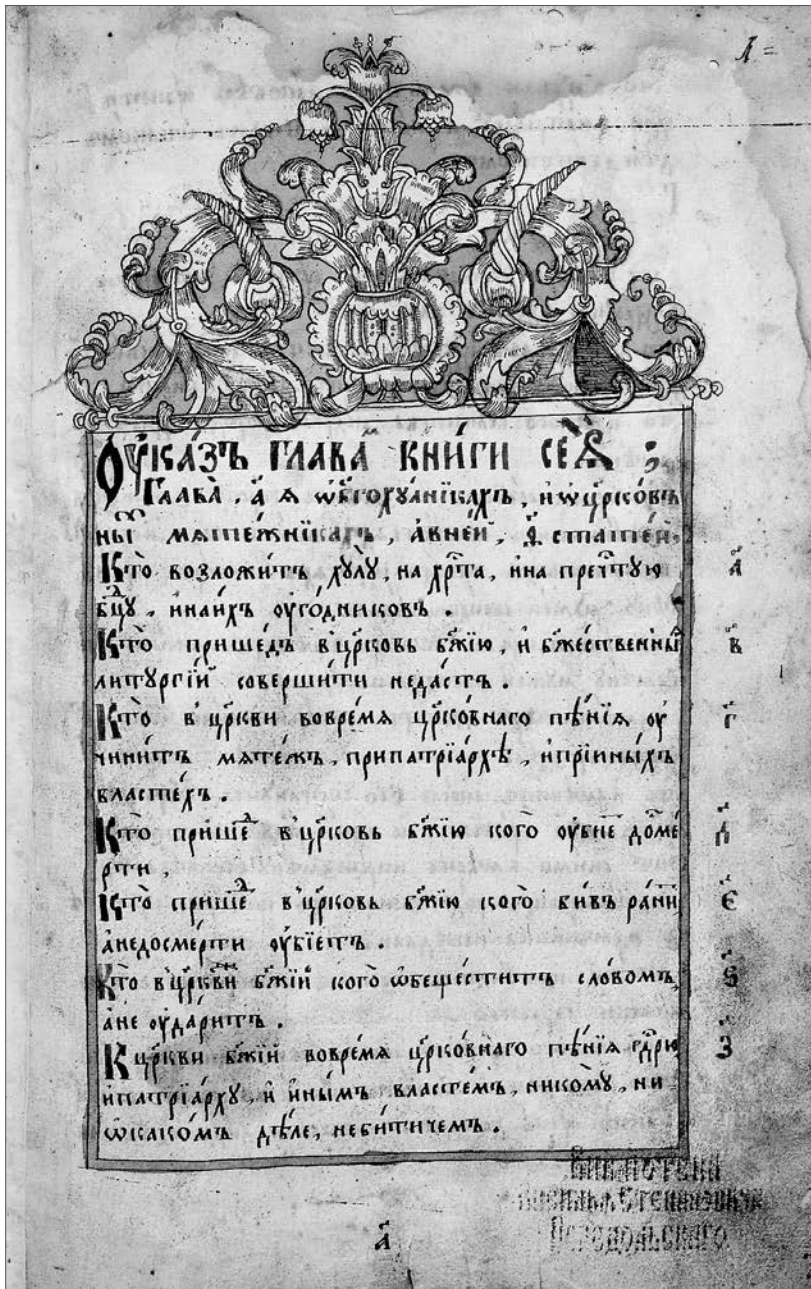 Оука́зъ глава́м кни́ги сеѧ̀ :
Глава̀ , а҃ я ѡбг҃охулникахъ , и ѡ цр҃ковъ
ны̑х мѧте́жникахъ , а внеи́ , ѳ҃ стате́й
Кто̀ возложи́тъ хулу̀ , на хр҃та̀ , ина преч҃тую
бц҃ду , и на и́хъ оуго́дниковъ .
Кто̀ прише́дъ в цр҃ковь бж҃ію , и бж҃е́ственныѧ
литургі́й соверши́ти неда́стъ .
Кто̀ в цр҃кви вовре́мѧ цр҃ко́внаго пѣ́нія оу
чини́тъ мѧте́жъ , припатріа́рхѣ , и пріины́хъ
власте́хъ .
Кто̀ прише́д в цр҃ковь бж҃ію кого̀ оубіе́т до́сме
рти ,
Кто̀ прише́д в цр҃ковь бж҃ію кого̀ бивъ ра́нит
а недосме́рти оубіе́тъ .
Кто̀ в цр҃кви бж҃іи кого̀ ѡбеще́ститъ сло́вомъ ,
а не оуда́ритъ .
К цр҃кви бж҃іи вовре́мѧ цр҃ко́внаго пѣ́нія гд҃рю
и патріа́рху , и и́нымъ власте́мъ , никому̀ , ни
ѡкако́мъ дѣ́ле , небитиче́мъ .
а҃
в҃
г҃
д҃
е҃
ѕ҃
з҃
а҃
Библиотека
Василья Степановича
Передольскаго